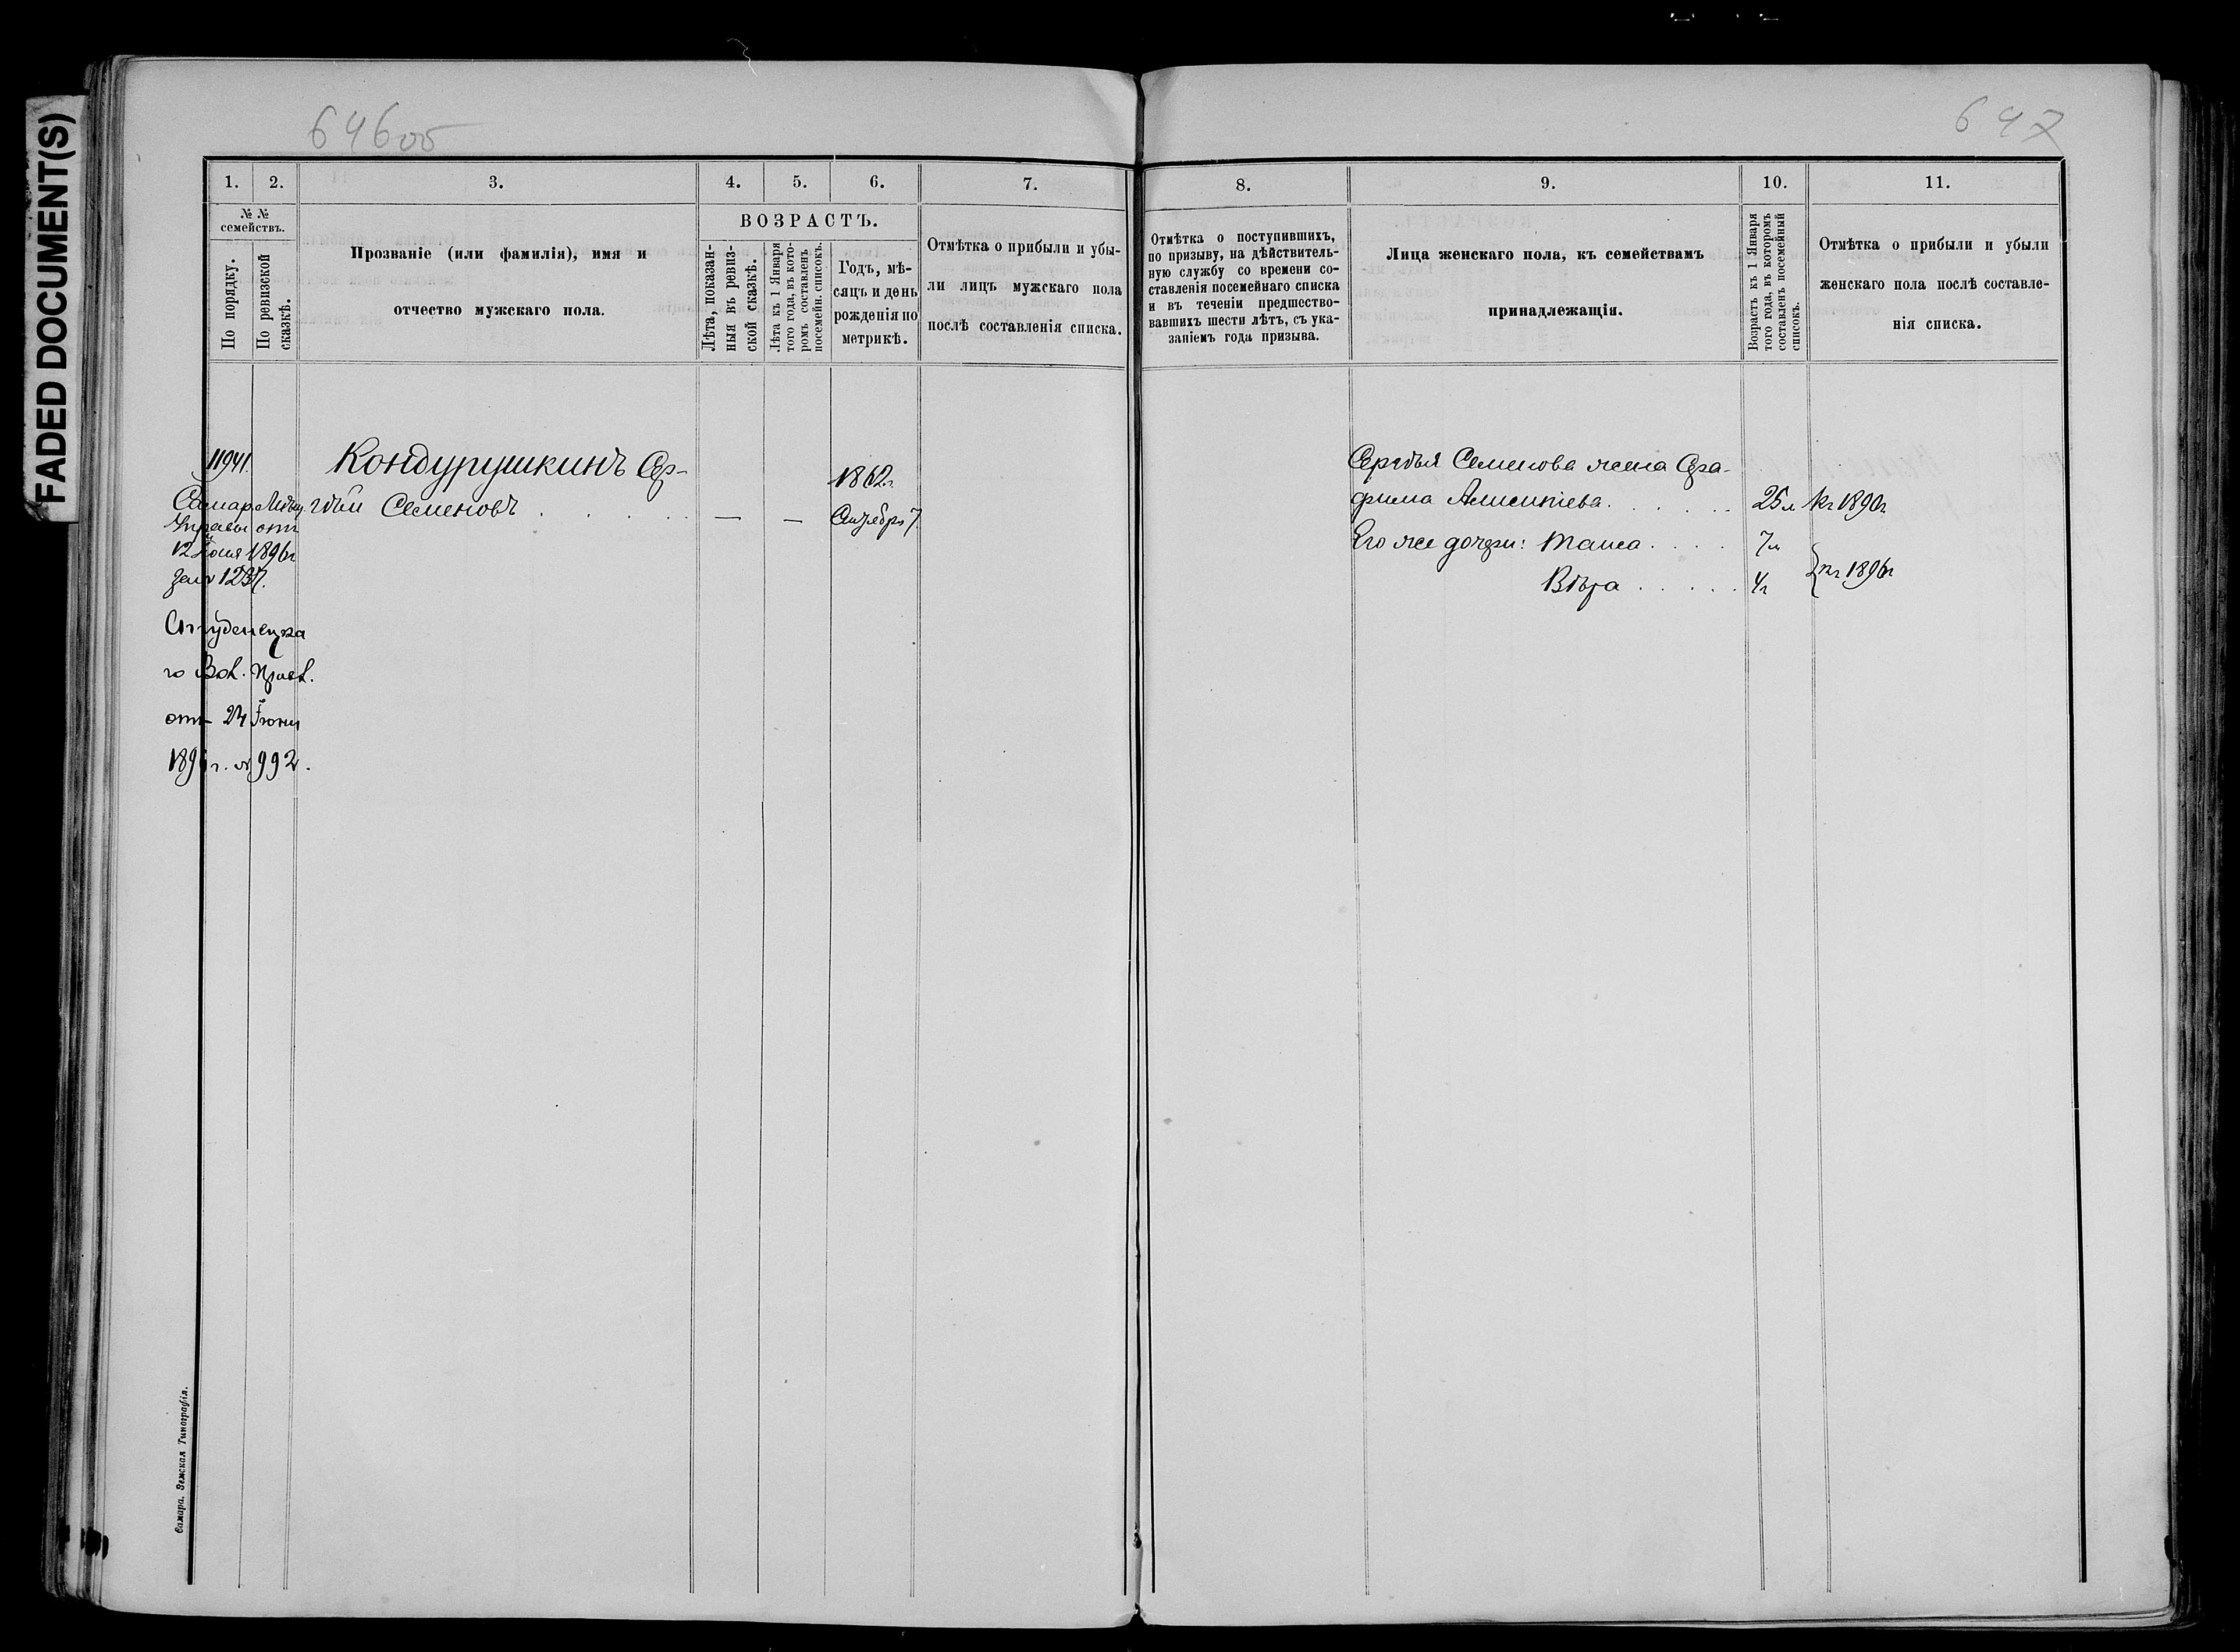 FADED DOCUMENT(S)
646 об
647
1. 2. 3. 4. 5. 6. 7.
№ №
семействъ.
По порядку.
По ревизской
сказкѣ.
Прозваніе (или фамилія), имя и
отчество мужскаго пола.
ВОЗРАСТЪ.
Лѣта, показан-
ныя въ ревиз-
ской сказкѣ.
Лѣта къ 1 Января
того года, въ кото-
ромъ составленъ
посемейн. списокъ.
Годъ, мѣ-
сяцъ и день
рожденія по
метрикѣ.
Отмѣтка о прибыли и убы-
ли лицъ мужскаго пола
послѣ составленія списка.
11941.
Самар. Мѣщ.
Управы отъ
12 Іюня 1896 г
за № 1237.
Студенецка
го Вол. Прав.
отъ 24 Іюня
1896 г. № 992.
Кондурушкинъ Сер-
гѣй Семеновъ . . . .
— —
1862 г.
Сентября 7
Самара. Земская Типографія.
8. 9. 10. 11.
Отмѣтка о поступившихъ,
по призыву, на дѣйствитель-
ную службу со времени со-
ставленія посемейнаго списка
и въ теченіи предшество-
вавшихъ шести лѣтъ, съ ука-
заніемъ года призыва.
Лица женскаго пола, къ семействамъ
принадлежащія.
Возрастъ къ 1 Января
того года, въ которомъ
составленъ посемейный
списокъ.
Отмѣтка о прибыли и убыли
женскаго пола послѣ составле-
нія списка.
Сергѣя Семенова жена Сера-
фима . . . . . 25 л 1890 г
Его же дочери: Таиса . . . . 7 л
Вѣра . . . . . 4 г
1896 г